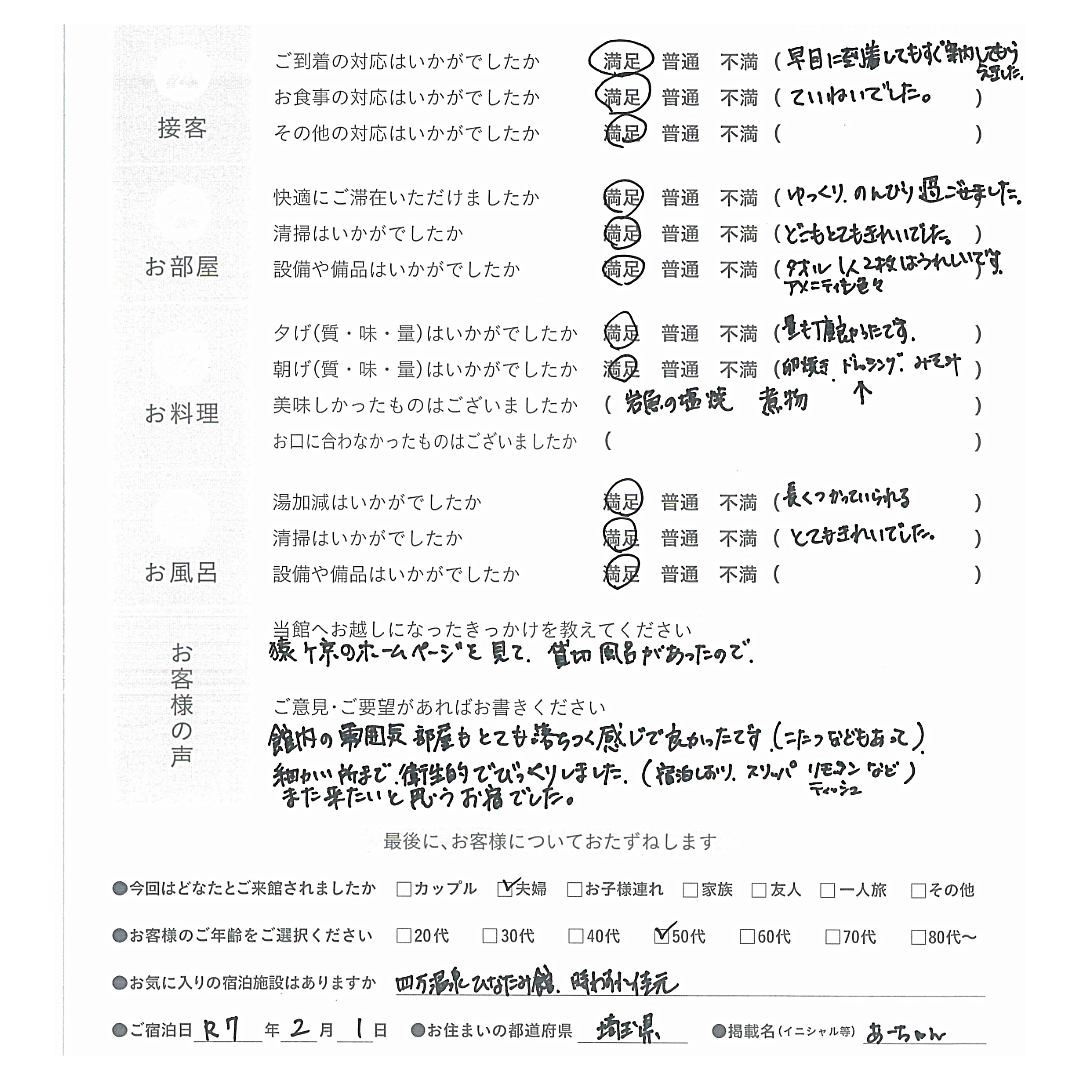 接客
ご到着の対応はいかがでしたか 満足 普通 不満 (早目に到着してもすぐ案内してもらえました。
お食事の対応はいかがでしたか 満足 普通 不満 (ていねいでした。)
その他の対応はいかがでしたか 満足 普通 不満 ( )
お部屋
快適にご滞在いただけましたか 満足 普通 不満 (ゆっくり、のんびり過ごせました。
清掃はいかがでしたか 満足 普通 不満 (どこもとてもきれいでした。)
設備や備品はいかがでしたか 満足 普通 不満 (タオル1人2枚はうれしいです。)
アメニティも色々
お料理
夕げ(質・味・量)はいかがでしたか 満足 普通 不満 (量も丁度良かったです。)
朝げ(質・味・量)はいかがでしたか 満足 普通 不満 (卵焼き、ドレッシング、みそ汁)
美味しかったものはございましたか ( 岩魚の塩焼 煮物 ↑ )
お口に合わなかったものはございましたか ( )
お風呂
湯加減はいかがでしたか 満足 普通 不満 (長くつかっていられる)
清掃はいかがでしたか 満足 普通 不満 (とてもきれいでした。)
設備や備品はいかがでしたか 満足 普通 不満 ( )
お客様の声
当館へお越しになったきっかけを教えてください
猿ヶ京のホームページを見て、貸切風呂があったので。
ご意見・ご要望があればお書きください
館内の雰囲気 部屋もとても落ちつく感じで良かったです(こたつなどもあって)。
細かい所まで、衛生的でびっくりしました。(宿泊しおり、スリッパ リモコンなど)
ティッシュ
また来たいと思うお宿でした。
最後に、お客様についておたずねします
●今回はどなたとご来館されましたか □カップル ☑夫婦 □お子様連れ □家族 □友人 □一人旅 □その他
●お客様のご年齢をご選択ください □20代 □30代 □40代 ☑50代 □60代 □70代 □80代〜
●お気に入りの宿泊施設はありますか 四万温泉ひなたみ館、時わすれ佳元
●ご宿泊日 R7 年 2 月 1 日 ●お住まいの都道府県 埼玉県 ●掲載名(イニシャル等) あーちゃん